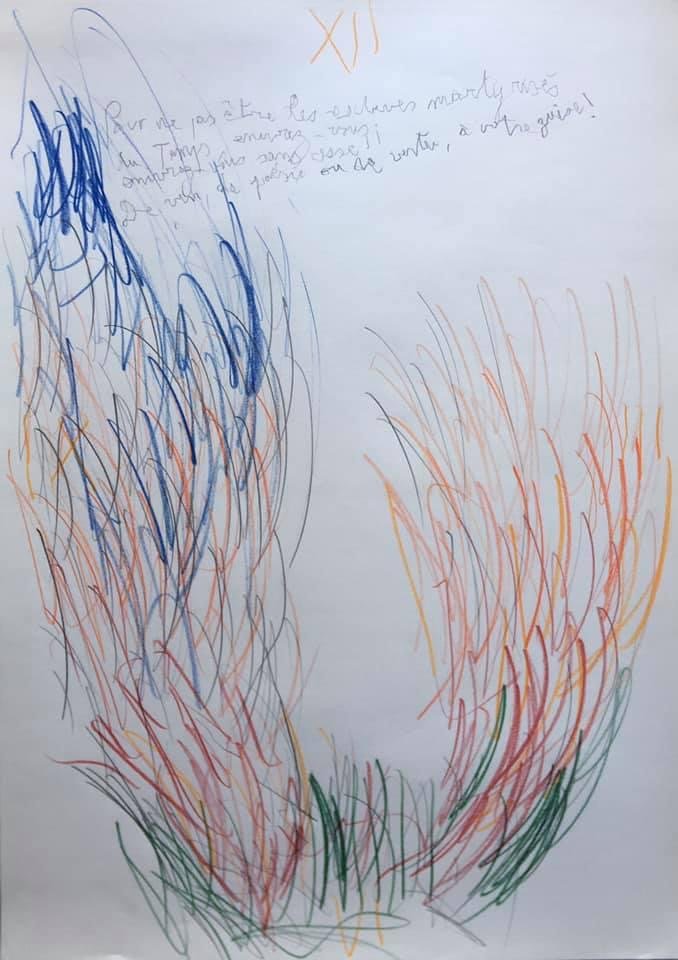 XII
Pour ne pas être les esclaves martyrisés
du Temps enivrez-vous!
enivrez-vous sans cesse!
De vin, de poésie ou de vertu, à votre guise!
VI